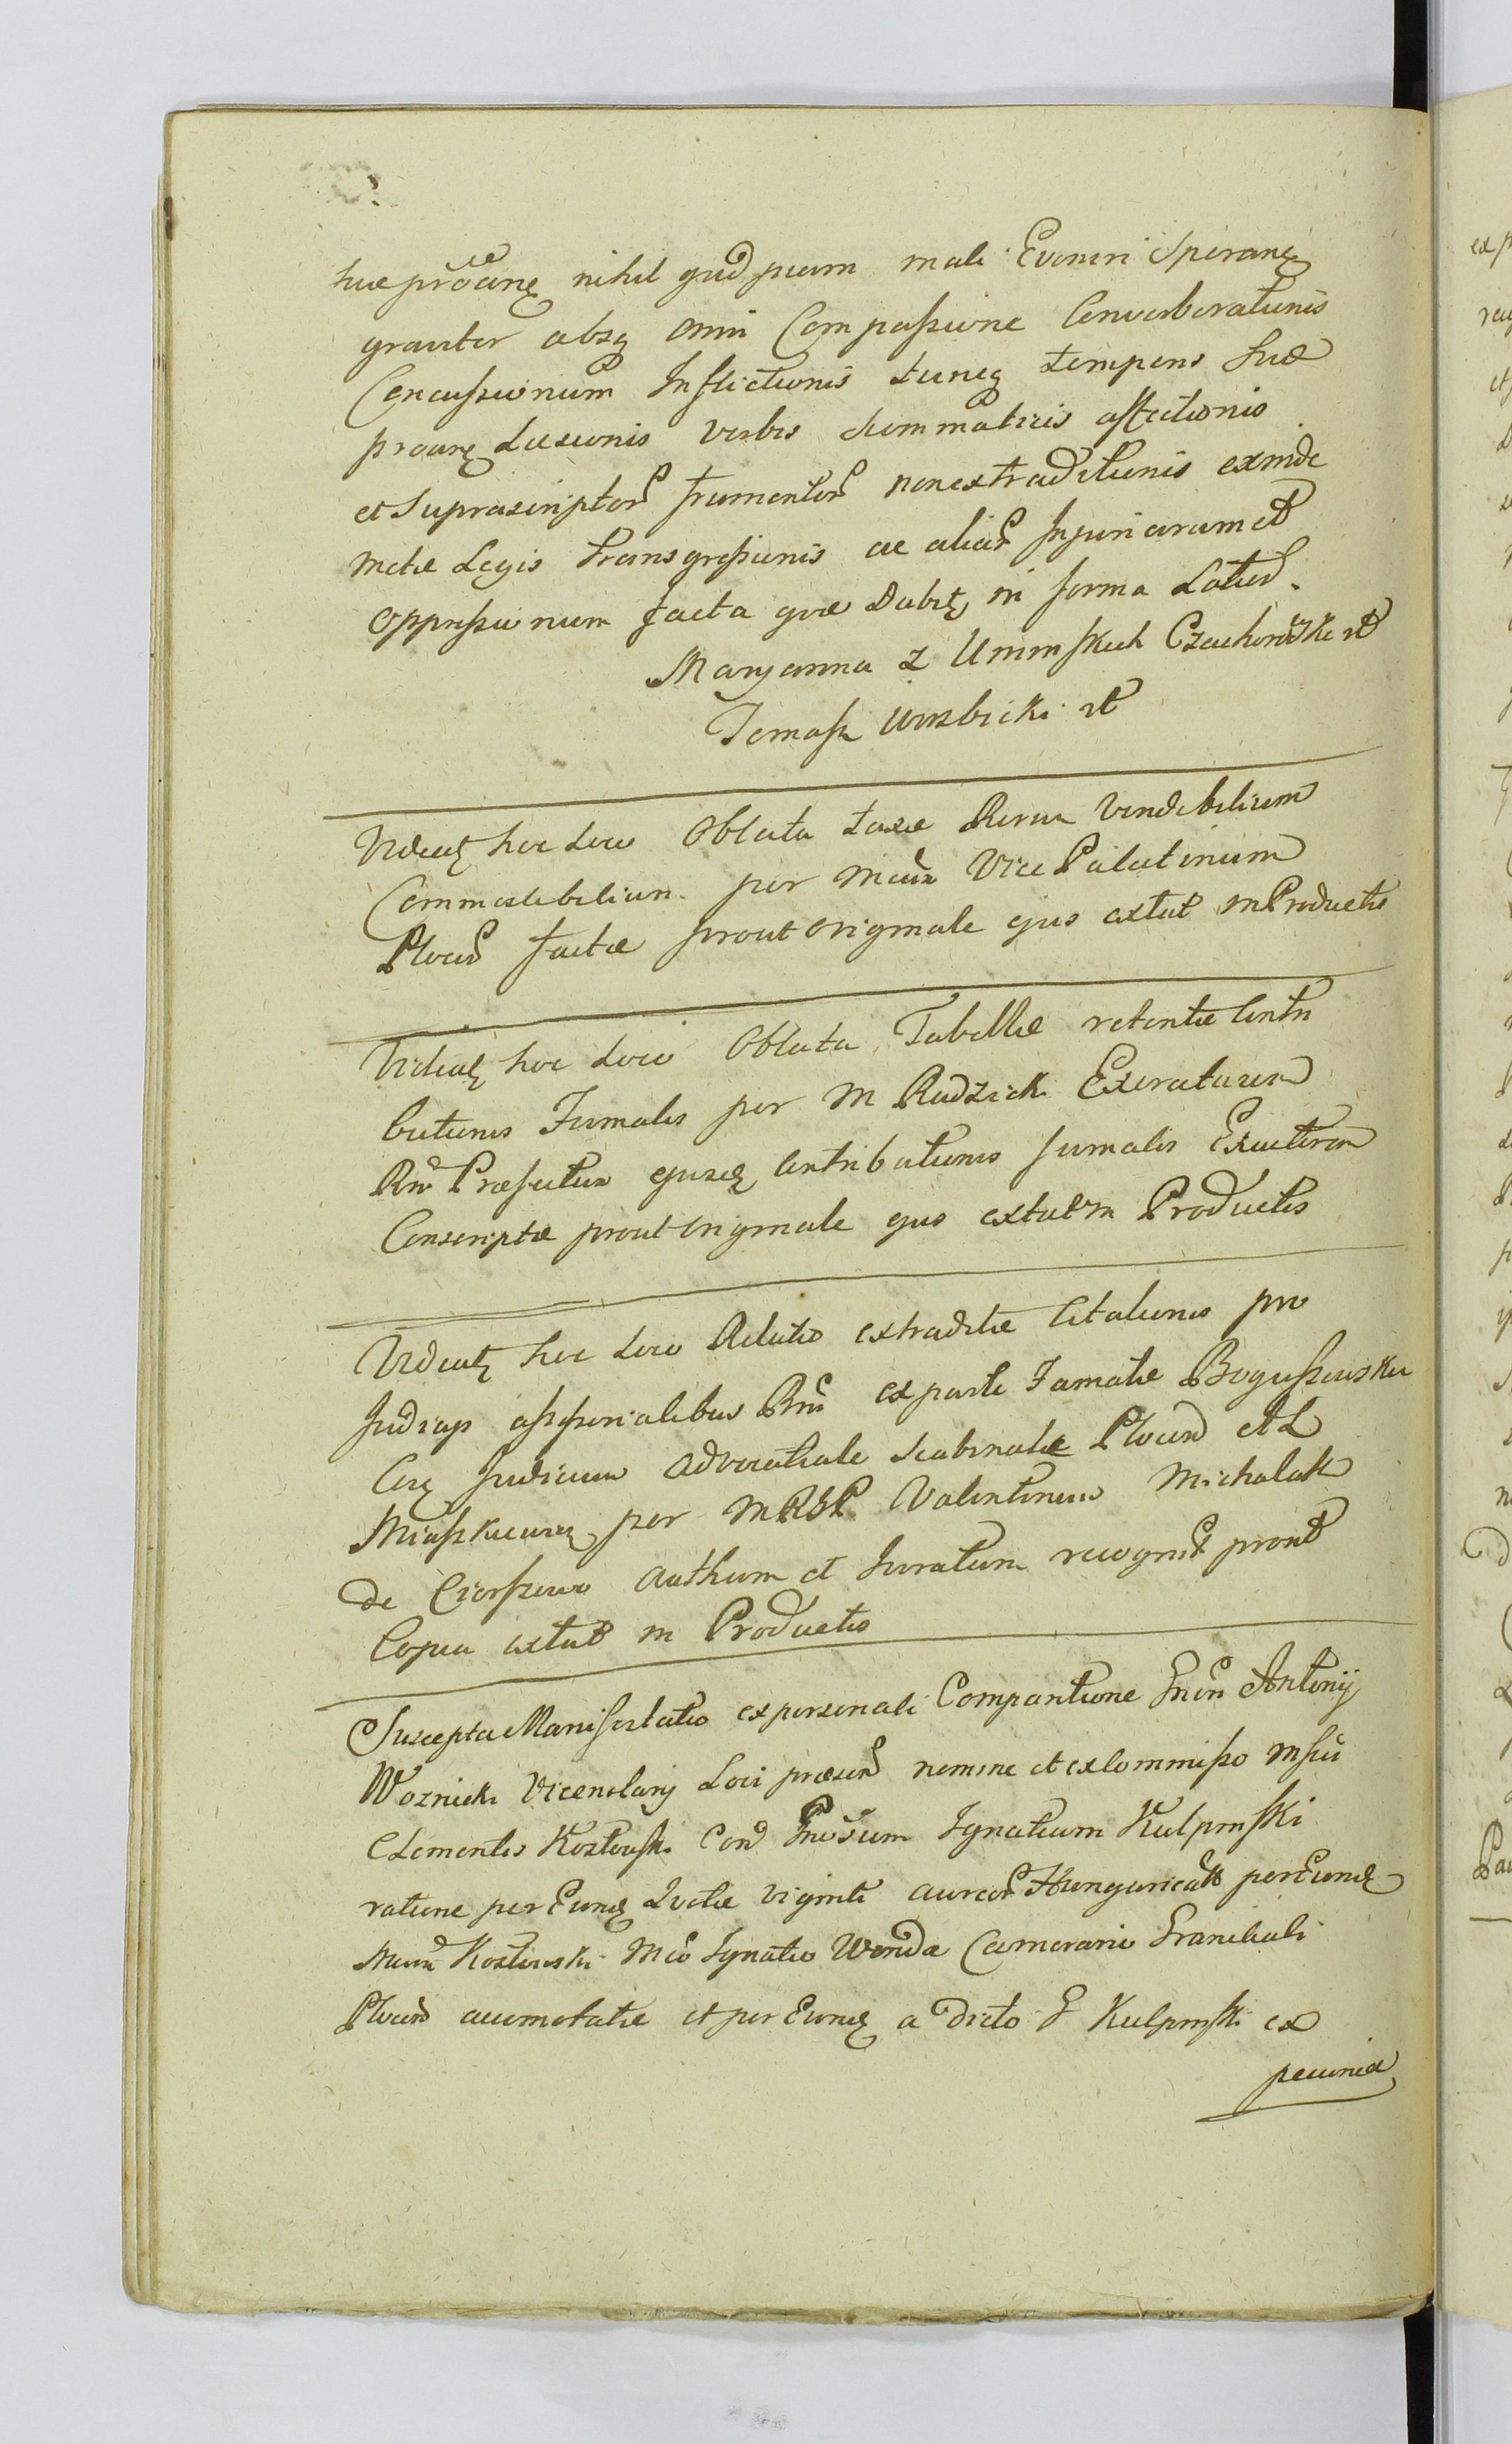 nihil quidpiam mali Eveniri Sperane
graviter absq omni Compassione Converberationis
Concussionum Inflictionis tuncq temporis Suæ
Læsionis verbis dommaticis affectionis
et Suprascriptor frumentor non extraditionis exinde
metæ Legis transgressionis ac aliar Injuriarum et
Oppressionum facta quæ Dabit in forma Latior.
Maryanna z Uminskich Czachorowska
Tomasz Wirzbicki
Videat hoc Loco Oblata taxæ Rerum Vendibilium
Commestibilium per Mcum Vice Palatinum
Plocen factæ prout originale ejus extat in Productis
Videat hoc Loco Oblata Tabellæ retentæ Contri
butionis Fumalis per M Radzicki Exeratarum
Rm Præfectum ejusq Contributionis fumalis Exactorem
Conscriptæ prout originale ejus extat in Productis
Videat hoc Loco Relatio extraditæ Citationis pro
Judicijs assessorialibus Rni ex parte Famatæ Boguszewska
Cor Judicium Advocatiale Scabinale Plocen et L
per MRGP Valentinum Michalak
de authum et Juratum recognit prout
Copia extat in Productis
Suscepta Manifestatio ex personali Comparitione Gnen Antonij
Woznicki Vicenotarij Loci præsen nomine et ex Commisso Mfici
Clementis Kozlowski Con Gnosum Ignatium Kulpinski
ratione per Eund viginti aureor Hungaricali per Eund
Kozlowski Mco Ignatio Wenda Camerario Granitiali
Plocen accomotatæ et per Eund a Dicto G Kulpinski ex
pecunia